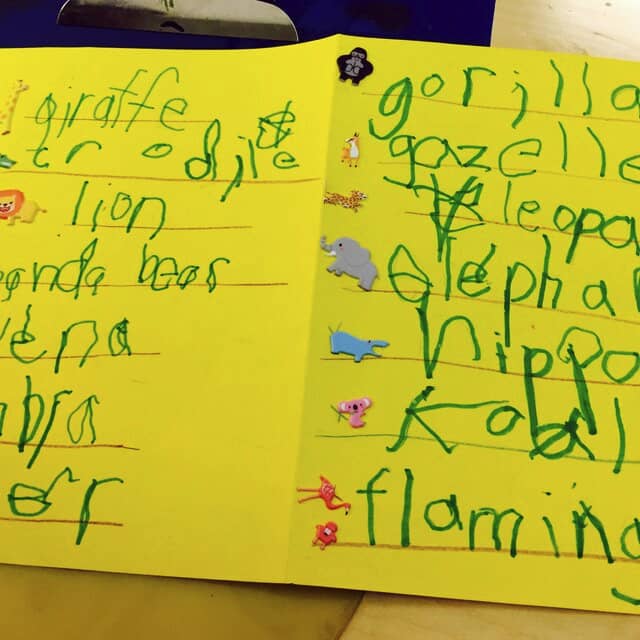 giraffe
crodile
lion
panda bear
iena
bra
er
gorilla
gazelle
leopa
elephan
hippo
koal
flaming